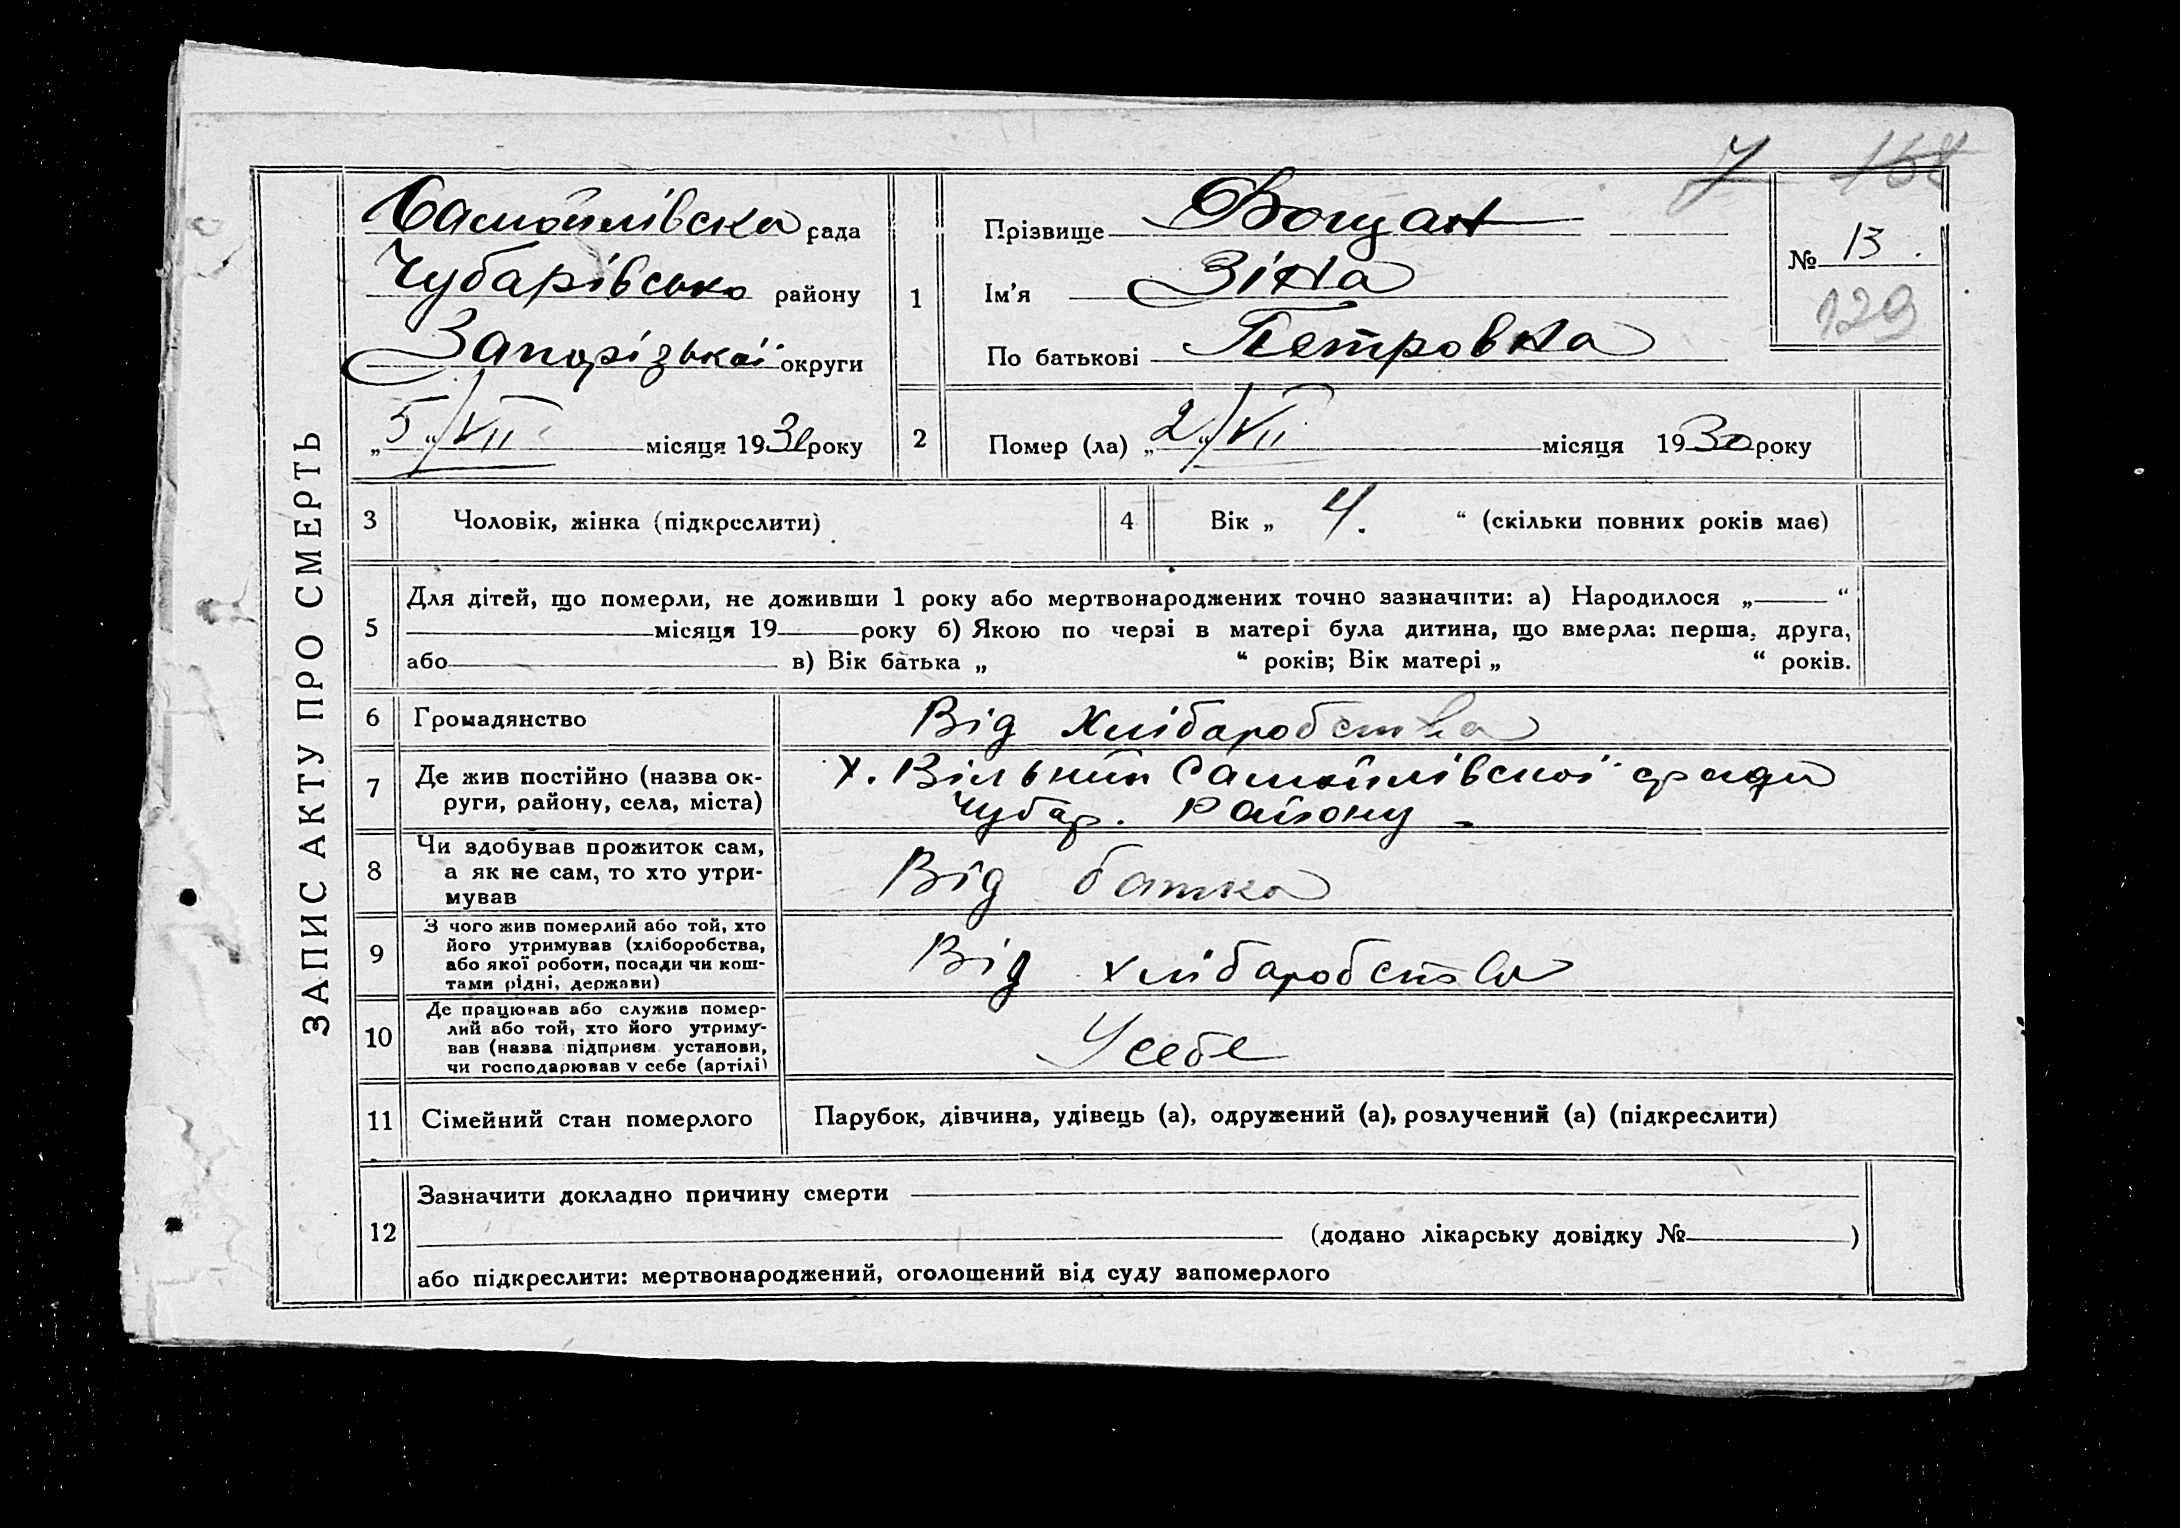 7 154
Самойлівска рада
Чубарівсько району
Запорізької округи
„5“/VII місяця 1930 року
1
Прізвище Вощан
Ім’я Зіна
По батькові Петровна
№ 13.
129
2
Помер (ла) „2“/VII місяця 1930 року
ЗАПИС АКТУ ПРО СМЕРТЬ
3 Чоловік, жінка (підкреслити)
4 Вік „ 4. “ (скільки повних років має)
5
Для дітей, що померли, не доживши 1 року або мертвонароджених точно зазначити: а) Народилося „ “
місяця 19 року б) Якою по черзі в матері була дитина, що вмерла: перша, друга,
або в) Вік батька „ “ років; Вік матері „ “ років.
6 Громадянство Від Хлібаробства
7 Де жив постійно (назва ок-
руги, району, села, міста)
х. Вільний Самойлівскої ради
Чубар. Району
8 Чи здобував прожиток сам,
а як не сам, то хто утри-
мував
Від батка
9 З чого жив померлий або той, хто
його утримував (хліборобства,
або якої роботи, посади чи кош-
тами рідні, держави)
Від хлібаробства
10 Де працював або служив помер-
лий або той, хто його утриму-
вав (назва підприєм. установи,
чи господарював у себе (артілі)
У себе
11 Сімейний стан померлого Парубок, дівчина, удівець (а), одружений (а), розлучений (а) (підкреслити)
12 Зазначити докладно причину смерти
(додано лікарську довідку № )
або підкреслити: мертвонароджений, оголошений від суду запомерлого